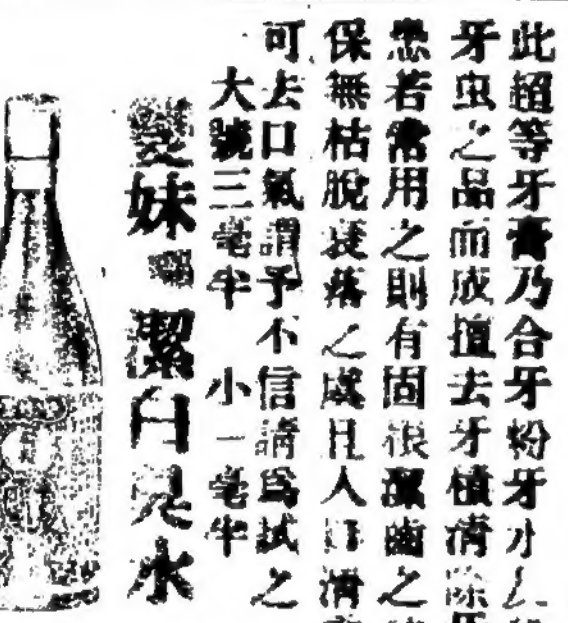 此超等牙膏乃合牙粉牙水
牙虫之品而成擅去牙積清除牙
患若常用之則有固根潔齒之
保無枯脫衰落之感且人口清
可去口氣謂予不信請爲試之
大號三毫半 小一毫半
妹 潔 水